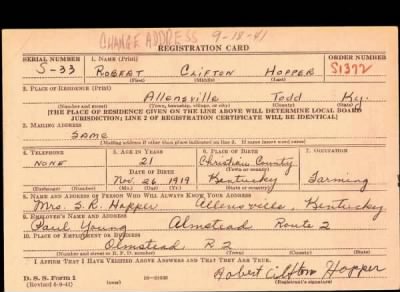 CHANGE ADDRESS 9-18-41
REGISTRATION CARD
SERIAL NUMBER 1. NAME (Print) ORDER NUMBER
S-33 ROBERT CLIFTON HOPPER S1372
(First) (Middle) (Last)
2. PLACE OF RESIDENCE (Print)
Allensville Todd Ky.
(Number and street) (Town, township, village, or city) (County) (State)
[THE PLACE OF RESIDENCE GIVEN ON THE LINE ABOVE WILL DETERMINE LOCAL BOARD
JURISDICTION; LINE 2 OF REGISTRATION CERTIFICATE WILL BE IDENTICAL]
3. MAILING ADDRESS
SAME
[Mailing address if other than place indicated on line 2. If same insert word same]
4. TELEPHONE 5. AGE IN YEARS 6. PLACE OF BIRTH 7. OCCUPATION
NONE 21 Christian County
DATE OF BIRTH (Town or county)
Nov. 26 1919 Kentucky Farming
(Exchange) (Number) (Mo.) (Day) (Yr.) (State or country)
8. NAME AND ADDRESS OF PERSON WHO WILL ALWAYS KNOW YOUR ADDRESS
Mrs. S.R. Hopper Allensville, Kentucky
9. EMPLOYER'S NAME AND ADDRESS
Paul Young Olmstead Route 2
10. PLACE OF EMPLOYMENT OR BUSINESS
Olmstead R 2
(Number and street or R. F. D. number) (Town) (County) (State)
I AFFIRM THAT I HAVE VERIFIED ABOVE ANSWERS AND THAT THEY ARE TRUE.
Robert Clifton Hopper
D. S. S. Form 1
(Revised 6-9-41) (over) (Registrant's signature)